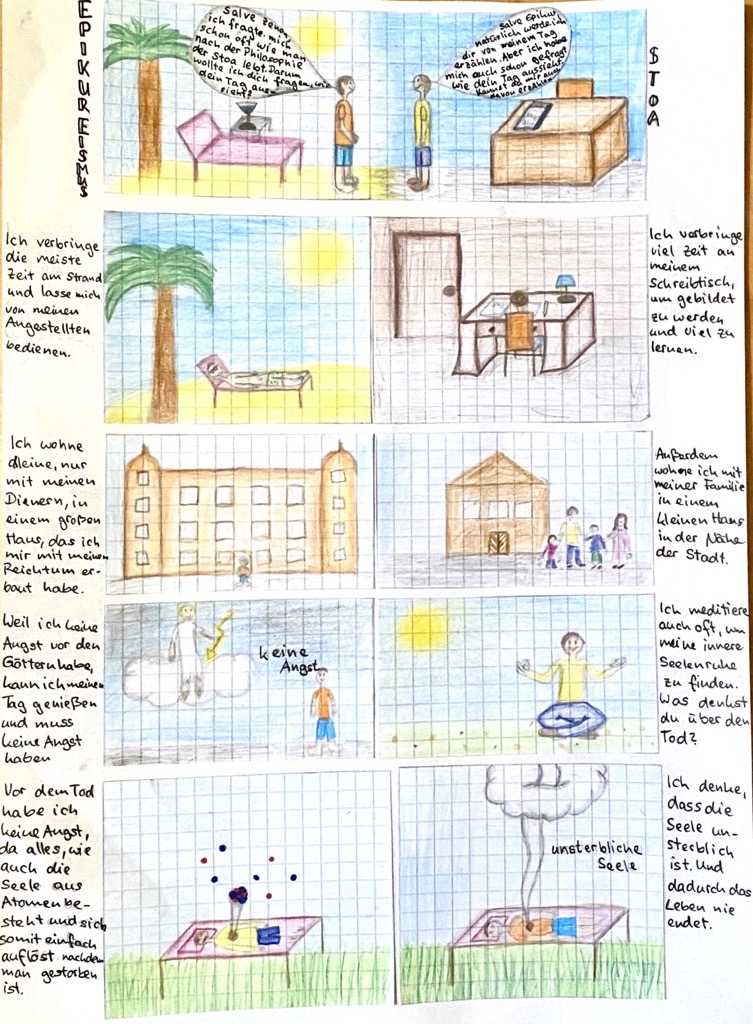 EPIKUREISMUS
Salve Zenon,
ich fragte mich
schon oft wie man
nach der Philosophie
der Stoa lebt. Darum
wollte ich dich fragen, wie
dein Tag aus-
sieht?
Salve Epikur,
natürlich werde ich
dir von meinem Tag
erzählen. Aber ich habe
mich auch schon gefragt
wie dein Tag aussieht.
Kannst du mir auch
davon erzählen?
STOA
Ich verbringe
die meiste
Zeit am Strand
und lasse mich
von meinen
Angestellten
bedienen.
Ich verbringe
viel Zeit an
meinem
Schreibtisch,
um gebildet
zu werden
und viel zu
lernen.
Ich wohne
alleine, nur
mit meinen
Dienern, in
einem großen
Haus, das ich
mir mit meinem
Reichtum er-
baut habe.
Außerdem
wohne ich mit
meiner Familie
in einem
kleinen Haus
in der Nähe
der Stadt.
Weil ich keine
Angst vor den
Göttern habe,
kann ich meinen
Tag genießen
und muss
keine Angst
haben
keine
Angst
Ich meditiere
auch oft, um
meine innere
Seelenruhe
zu finden.
Was denkst
du über den
Tod?
Vor dem Tod
habe ich
keine Angst,
da alles, wie
auch die
Seele aus
Atomen be-
steht und sich
somit einfach
auflöst nachdem
man gestorben
ist.
unsterbliche
Seele
Ich denke,
dass die
Seele un-
sterblich
ist. Und
dadurch das
Leben nie
endet.